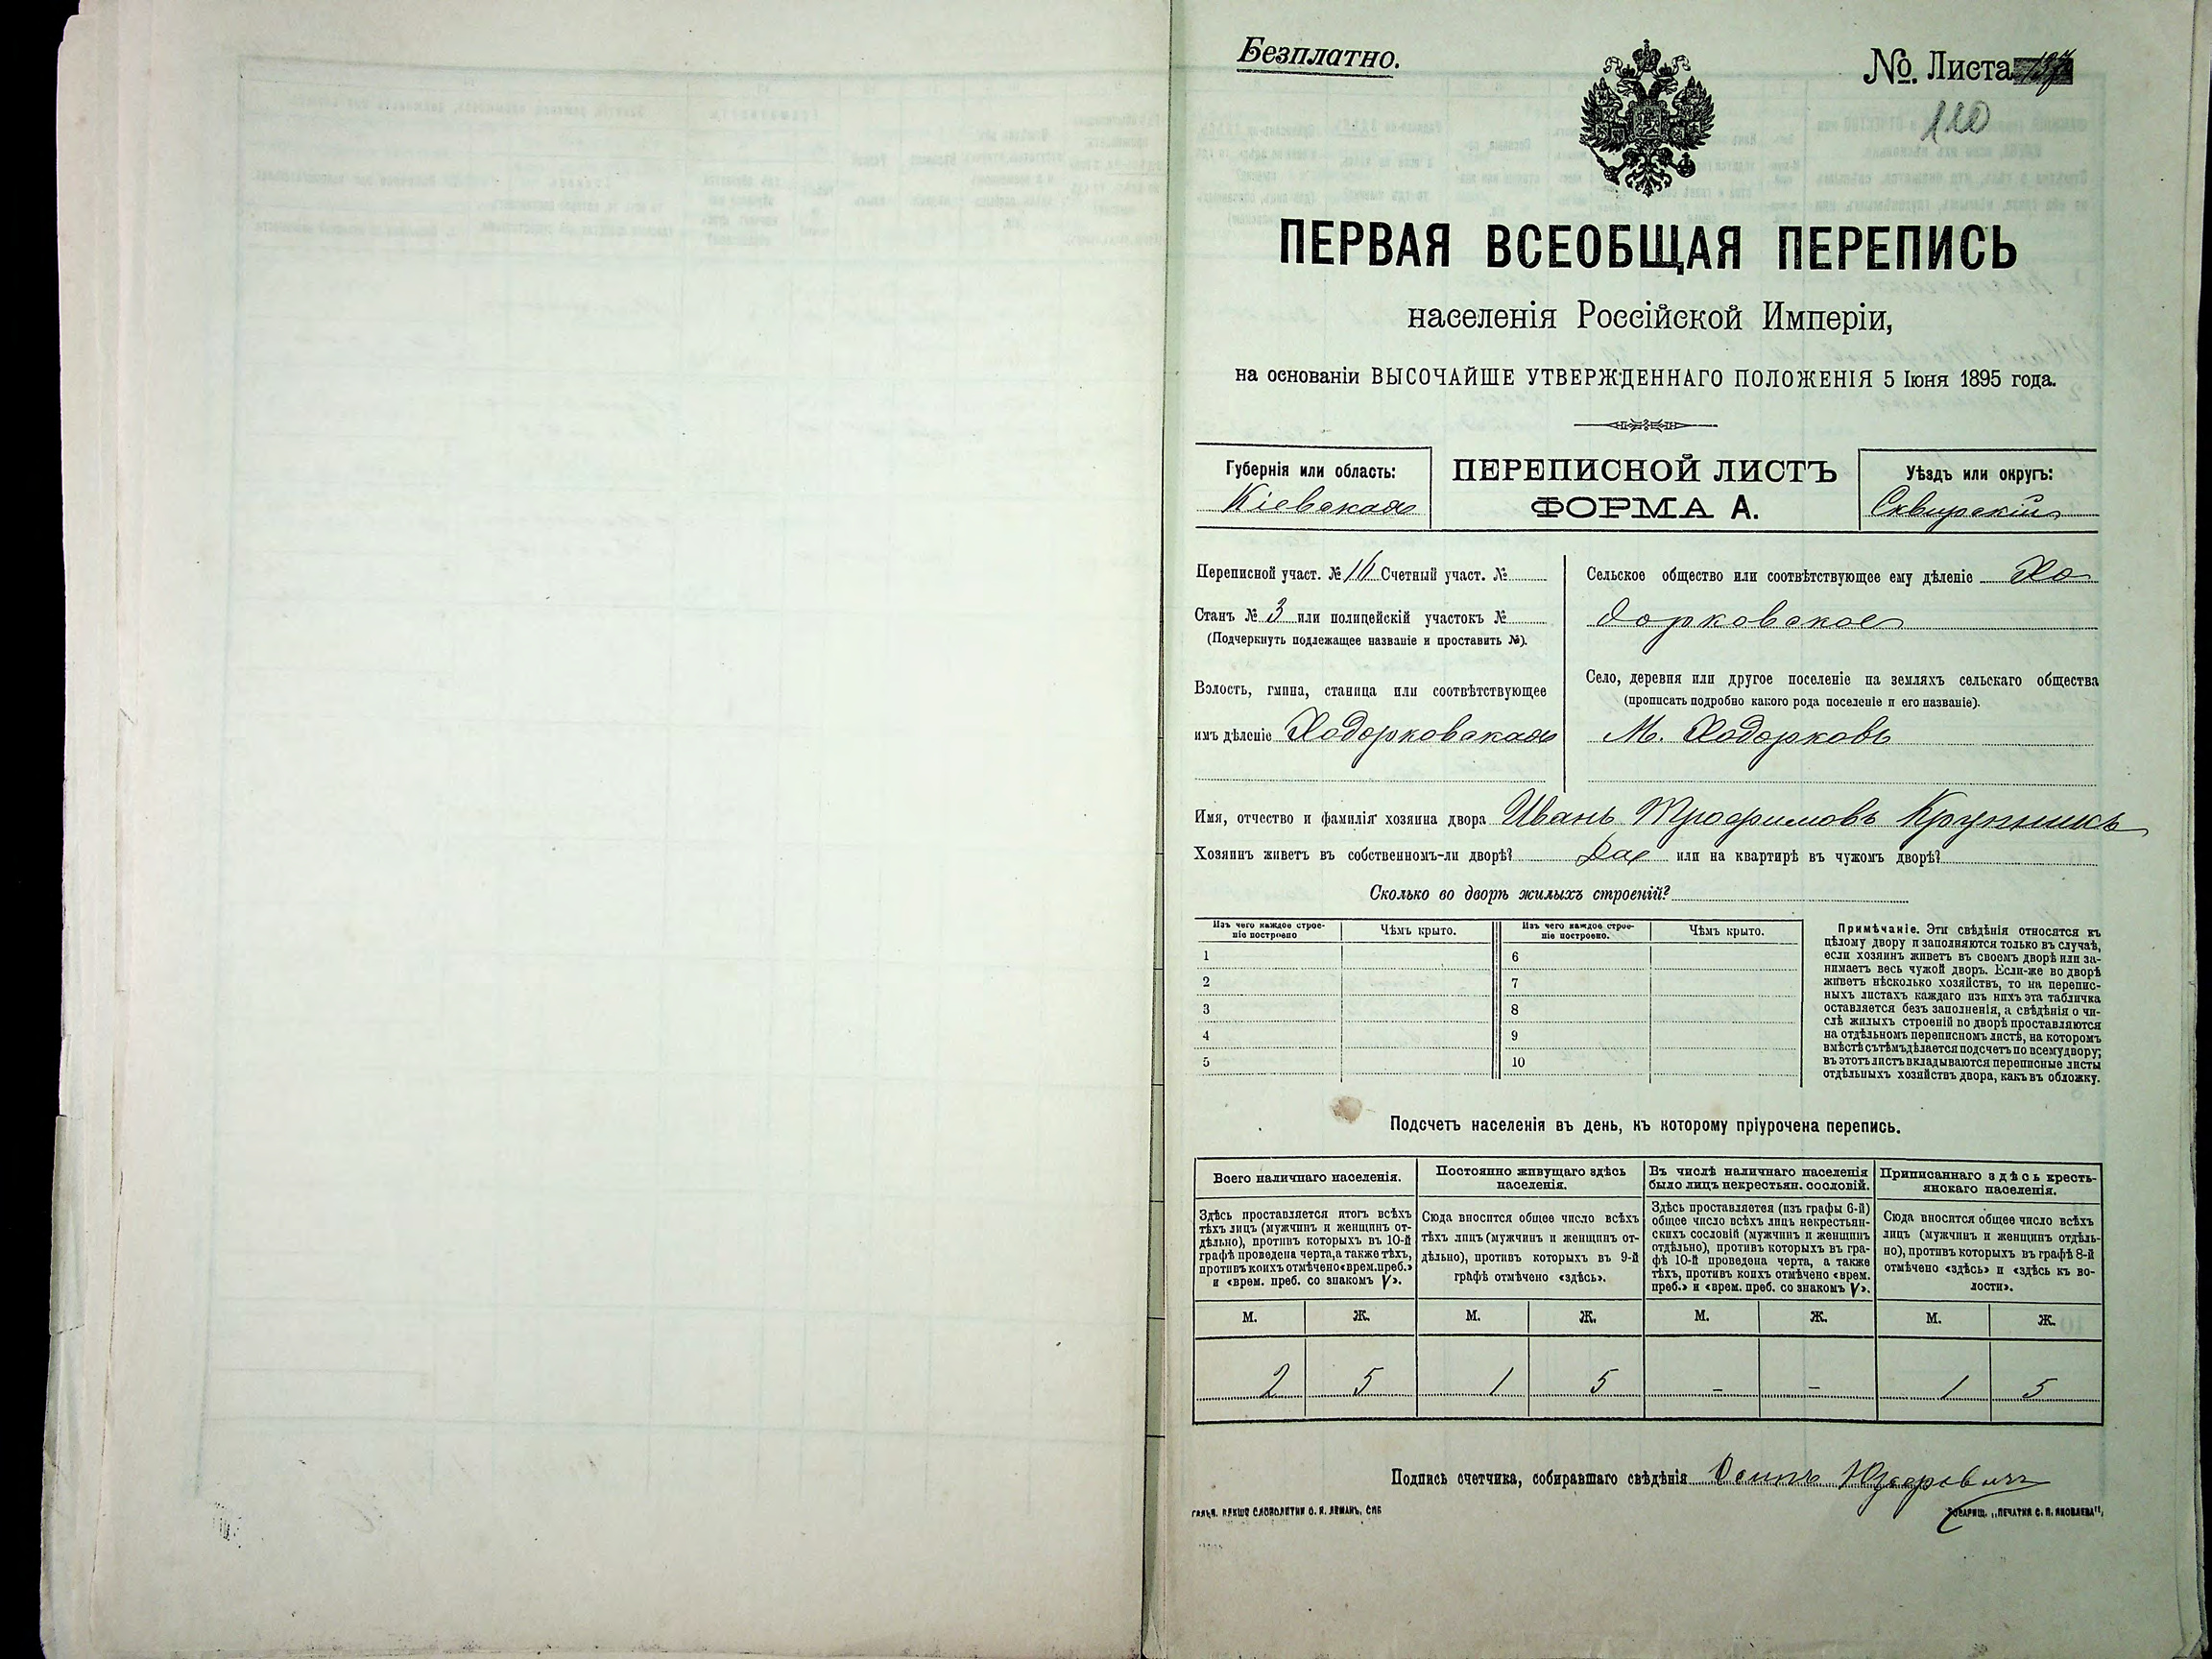 Безплатно.
№ Листа
110
ПЕРВАЯ ВСЕОБЩАЯ ПЕРЕПИСЬ
населенія Россійской Имперіи,
на основаніи ВЫСОЧАЙШЕ УТВЕРЖДЕННАГО ПОЛОЖЕНІЯ 5 Іюня 1895 года.
Губернія или область:
Кіевская
ПЕРЕПИСНОЙ ЛИСТЪ
ФОРМА А.
Уѣздъ или округъ:
Сквирскій
Переписной участ. № 16 Счетный участ. №
Станъ № 3 или полицейскій участокъ №
(Подчеркнуть подлежащее названіе и проставить №).
Волость, гмина, станица или соотвѣтствующее
имъ дѣленіе Ходорковская
Сельское общество или соотвѣтствующее ему дѣленіе Хо
дорковское
Село, деревня или другое поселеніе на земляхъ сельскаго общества
(прописать подробно какого рода поселеніе и его названіе).
М. Ходорковъ
Имя, отчество и фамилія хозяина двора Иванъ Трофимовъ Крупникъ
Хозяинъ живетъ въ собственномъ-ли дворѣ? Да или на квартирѣ въ чужомъ дворѣ?
Сколько во дворѣ жилыхъ строеній?
Изъ чего каждое строе-
ніе построено
Чѣмъ крыто.
Изъ чего каждое строе-
ніе построено.
Чѣмъ крыто.
1
6
2
7
3
8
4
9
5
10
Примѣчаніе. Эти свѣдѣнія относятся къ
цѣлому двору и заполняются только въ случаѣ,
если хозяинъ живетъ въ своемъ дворѣ или за-
нимаетъ весь чужой дворъ. Если-же во дворѣ
живетъ нѣсколько хозяйствъ, то на перепис-
ныхъ листахъ каждаго изъ нихъ эта табличка
оставляется безъ заполненія, а свѣдѣнія о чи-
слѣ жилыхъ строеній во дворѣ проставляются
на отдѣльномъ переписномъ листѣ, на которомъ
вмѣстѣ съ тѣмъ дѣлается подсчетъ по всему двору;
въ этотъ листъ вкладываются переписные листы
отдѣльныхъ хозяйствъ двора, какъ въ обложку.
Подсчетъ населенія въ день, къ которому пріурочена перепись.
Всего наличнаго населенія.
Здѣсь проставляется итогъ всѣхъ
тѣхъ лицъ (мужчинъ и женщинъ от-
дѣльно), противъ которыхъ въ 10-й
графѣ проведена черта, а также тѣхъ,
противъ коихъ отмѣчено «врем. преб.»
и «врем. преб. со знакомъ V».
Постоянно живущаго здѣсь
населенія.
Сюда вносится общее число всѣхъ
тѣхъ лицъ (мужчинъ и женщинъ от-
дѣльно), противъ которыхъ въ 9-й
графѣ отмѣчено «здѣсь».
Въ числѣ наличнаго населенія
было лицъ некрестьян. сословій.
Здѣсь проставляется (изъ графы 6-й)
общее число всѣхъ лицъ некрестьян-
скихъ сословій (мужчинъ и женщинъ
отдѣльно), противъ которыхъ въ гра-
фѣ 10-й проведена черта, а также
тѣхъ, противъ коихъ отмѣчено «врем.
преб.» и «врем. преб. со знакомъ V».
Приписаннаго здѣсь кресть-
янскаго населенія.
Сюда вносится общее число всѣхъ
лицъ (мужчинъ и женщинъ отдѣль-
но), противъ которыхъ въ графѣ 8-й
отмѣчено «здѣсь» и «здѣсь къ во-
лости».
М. Ж. М. Ж. М. Ж. М. Ж.
2 5 1 5 - - 1 5
Подпись счетчика, собиравшаго свѣдѣнія Осипъ
ТОВАРИЩ. „ПЕЧАТНЯ С. П. ЯКОВЛЕВА",